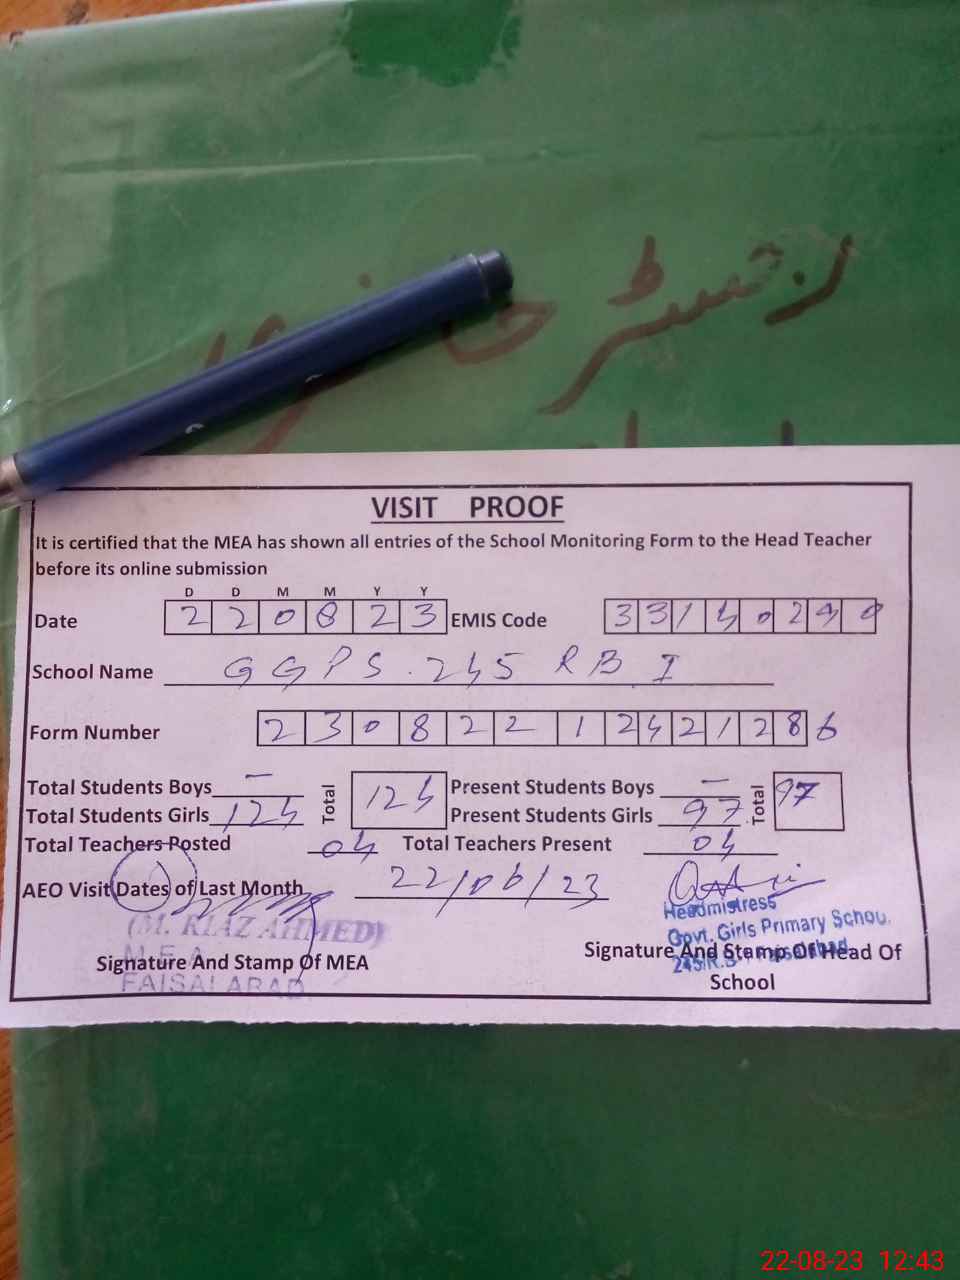 رجسٹر حاضری
VISIT PROOF
It is certified that the MEA has shown all entries of the School Monitoring Form to the Head Teacher
before its online submission
D D M M Y Y
Date 2 2 0 8 2 3 EMIS Code 3 3 1 4 0 2 9 0
School Name GGPS. 245 RB I
Form Number 2 3 0 8 2 2 1 2 4 2 1 2 8 6
Total Students Boys — Total 124 Present Students Boys — Total 97
Total Students Girls 124 Present Students Girls 97
Total Teachers Posted 04 Total Teachers Present 04
AEO Visit Dates of Last Month 22/06/23
(M. RIAZ AHMED)
M.E.A
FAISALABAD
Signature And Stamp Of MEA
Headmistress
Govt. Girls Primary School
245 R.B. Faisalabad
Signature And Stamp Of Head Of
School
22-08-23 12:43